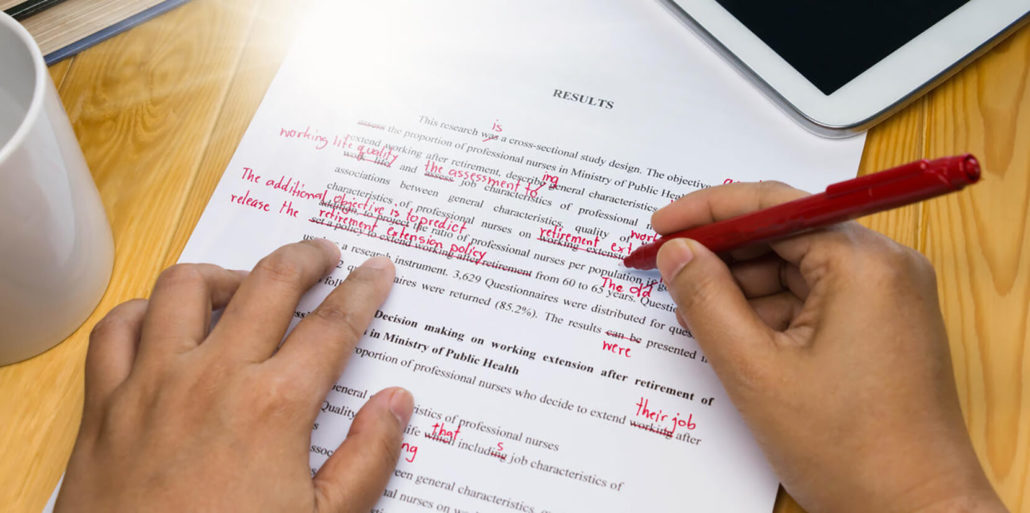 RESULTS
is
This research was a cross-sectional study design. The objective
working life quality
assess the proportion of professional nurses in Ministry of Public Heal
extend working after retirement, describing general characteristics
work life and the assessment to assess job characteristics of professional
The additional objective is to predict
associations between general characteristics, quality of work
release the retirement extension policy
characteristics of professional nurses on working extens
retirement ext
the ratio of professional nurses per population
set a policy to extend working after retirement from 60 to 65 years. Questio
The old
a research instrument. 3,629 Questionnaires were distributed for
2 questionnaires were returned (85.2%). The results can be presented
were
Decision making on working extension after retirement of
in Ministry of Public Health
proportion of professional nurses who decide to extend working after
their job
general characteristics of professional nurses
Quality life which including job characteristics of
that
s
ng
een general characteristics,
nal nurses on